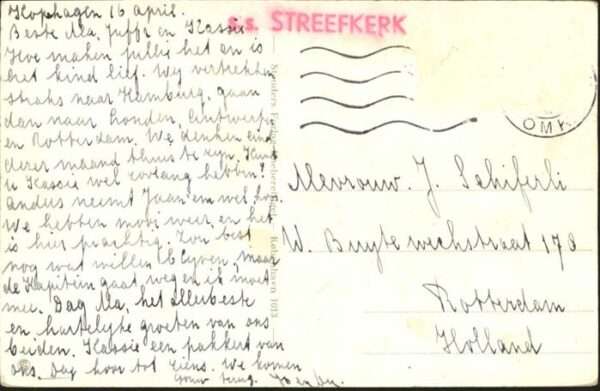 Kophagen 16 april.
s.s. STREEFKERK
Beste Ma, Juffr en Kassie
Hoe maken jullie het en is
het kind lief. Wy vertrekken
straks naar Hamburg, gaan
dan naar Londen, Antwerpen
en Rotterdam. We denken eind
dezer maand thuis te zyn. Kunt
u Kassie wel zoolang hebben?
anders neemt Jaan em wel hoor.
We hebben mooi weer en het
is hier prachtig. Zou best
nog wat willen blyven, maar
de Kapitein gaat weg en ik moet
mee. Dag Ma, het allerbeste
en hartelyke groeten van ons
beiden. Kassie een pakkert van
ons. Dag hoor tot ziens. We komen
gauw terug.
OMK
Mevrouw. J. Schiferli
W. Buytewechstraat 178
Rotterdam
Holland